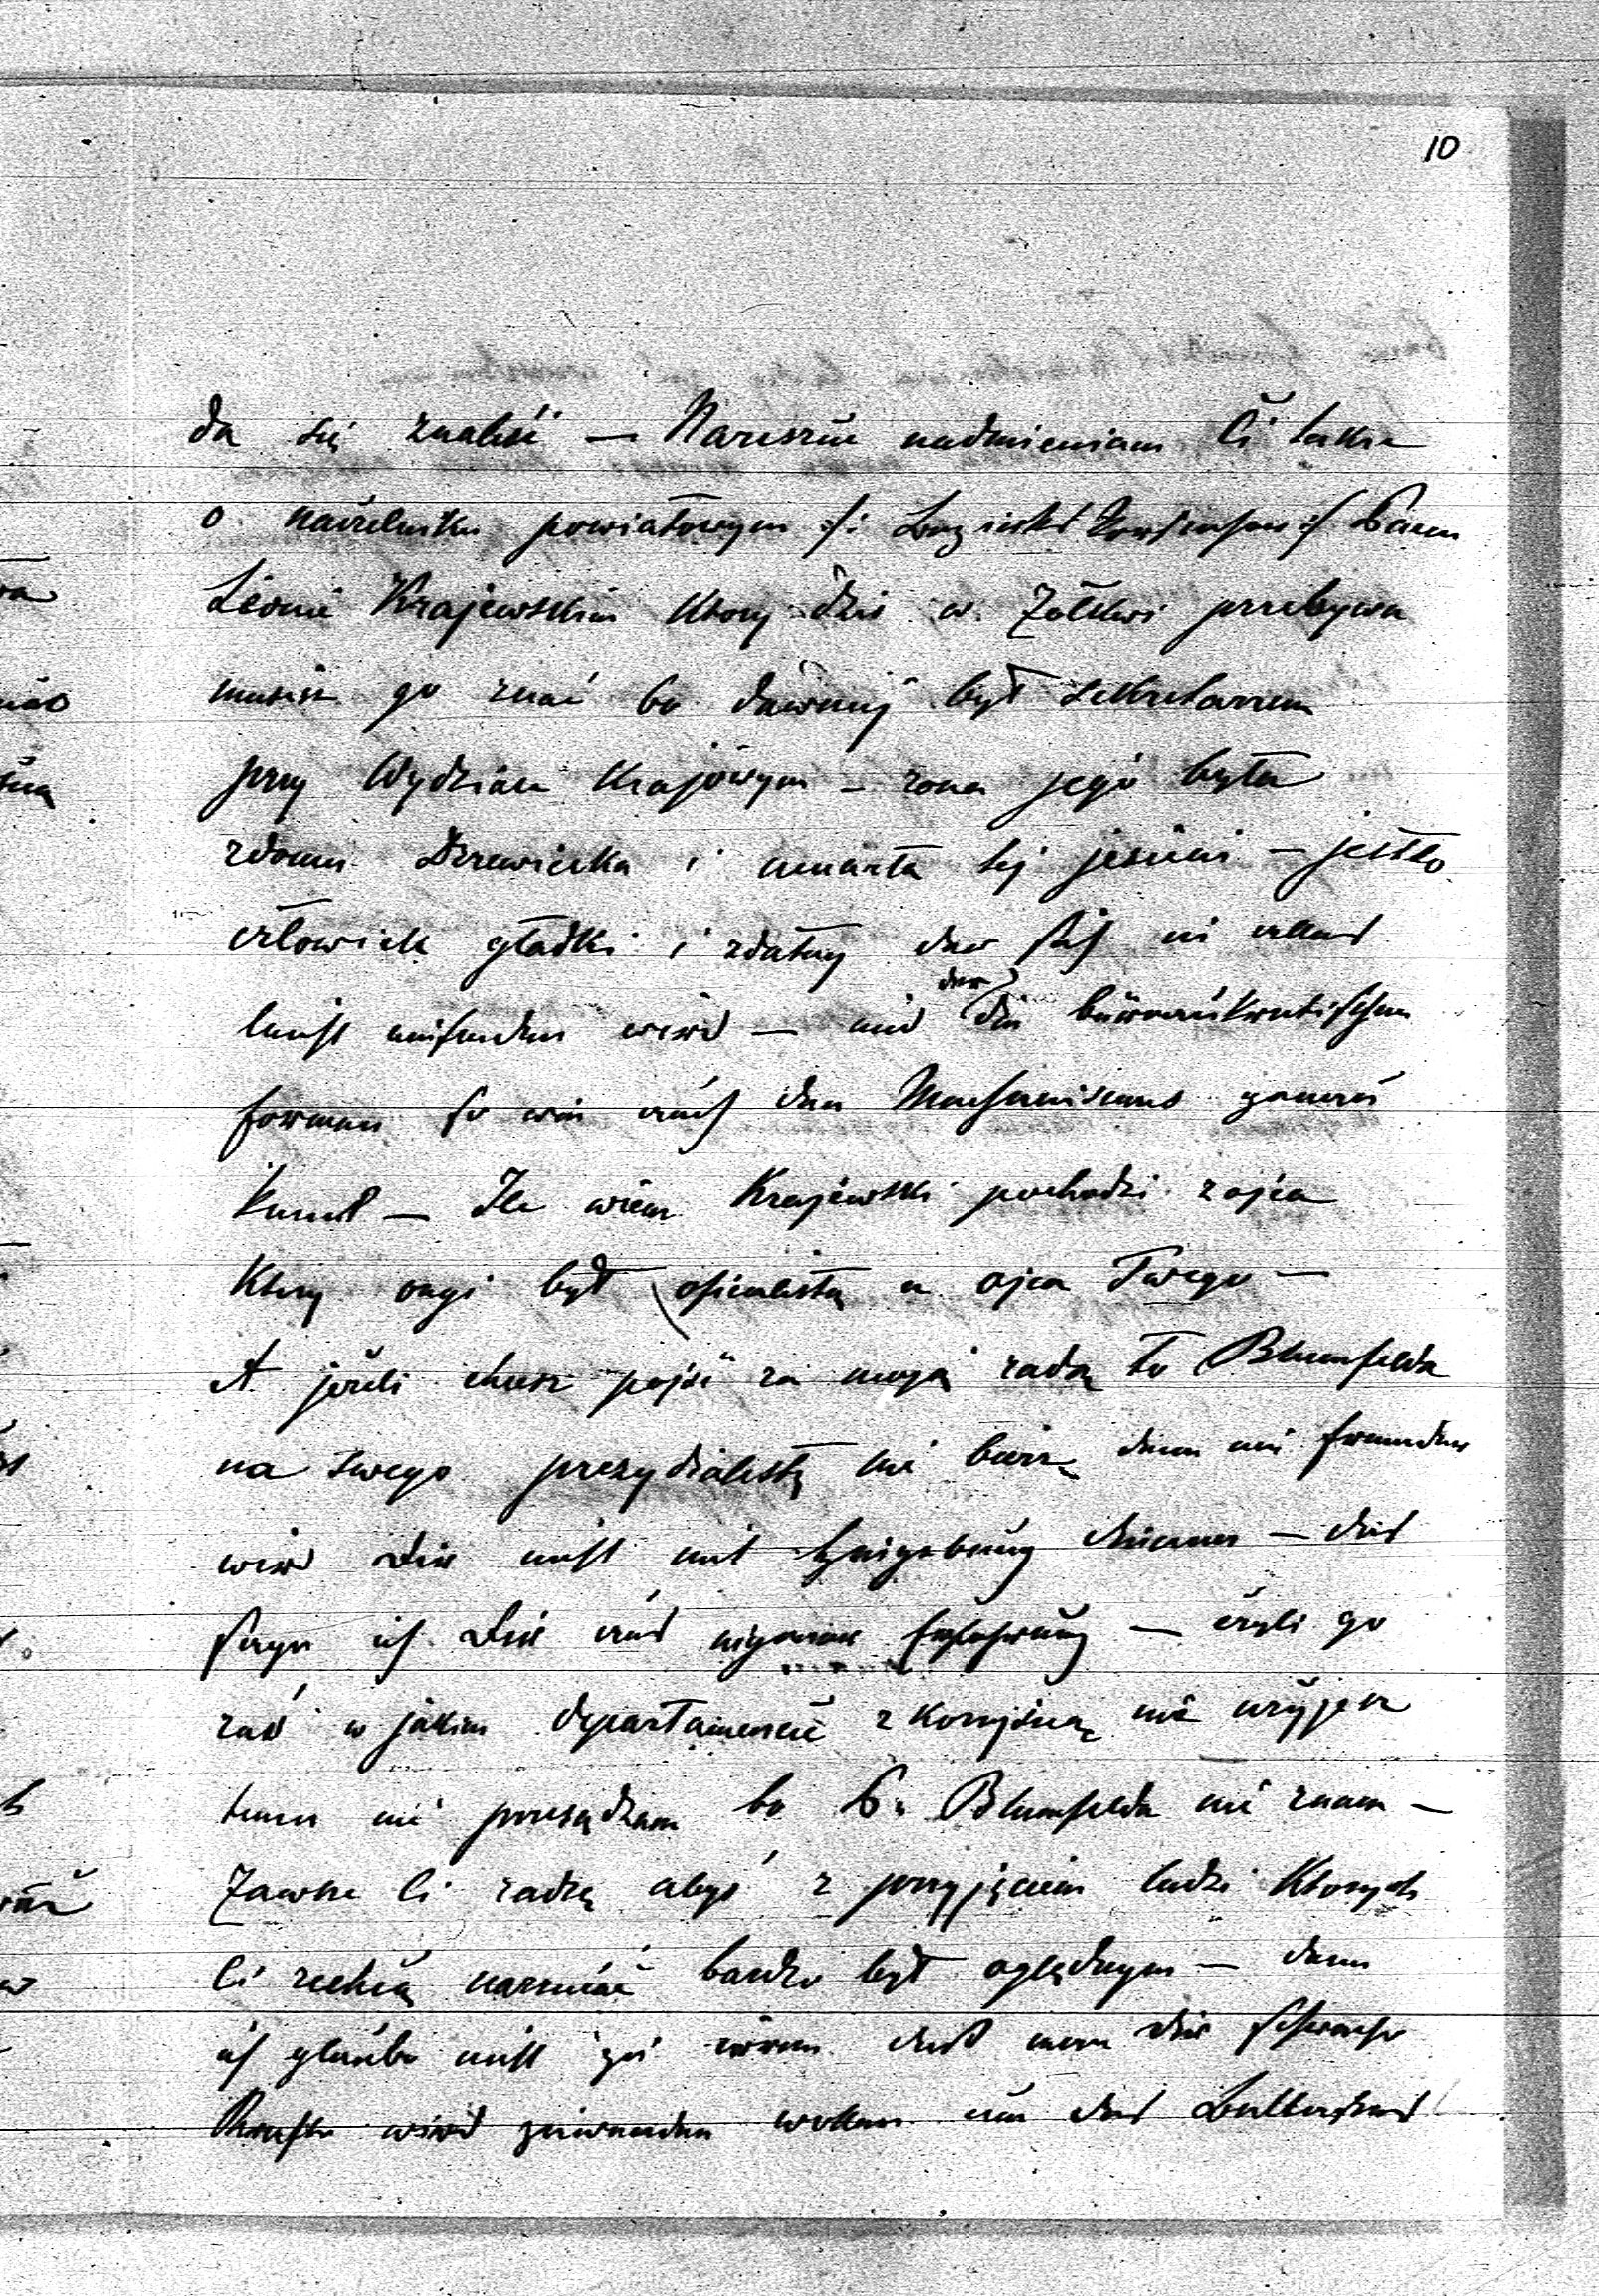 10
da się znaleść — Nareszcie nadmieniam Ci także
o naczelniku powiatowym /: Bezirks Vorsteher :/ Panu
Leonie Krajewskim ktory dziś w Zołkwi przebywa
musisz go znać bo dawniej był sekretarzem
przy Wydziale Krajowym — zona jego była
zdomu Drzewiecka i umarła tej jesieni — jestto
człowiek gładki i zdatny der sich in alles
leicht einfinden wird — und der die büreaukratischen
formen so wie auch den Mechanismus genau
kennt — Ile wiem Krajewski pochodzi z ojca
ktory ongi był oficialistą u ojca Twego —
A jeżeli chcesz pojść za moją radą to Blumfelda
na twego prezydialistę nie bierz denn ein fremder
wird Dir nicht mit Hingebung dienen — das
sage ich Dir aus eigener Erfahrung — czyli go
zaś w jakim departamencie z korzyścią nie użyjesz
temu nie przesądzam bo P. Blumfelda nie znam —
Zawsze Ci radzę abyś z przyjęciem ludzi ktorych
Ci zechcą narzucać bardzo był oględnym — denn
ich glaube nicht zu irren daß man Dir schwache
Kräfte wird zuwenden wollen um das